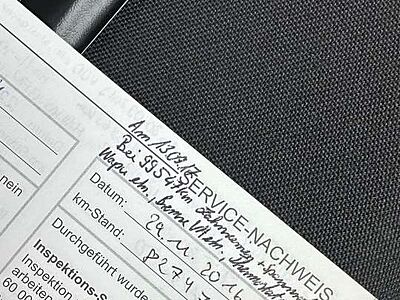 Am 13.09.17
Bei 99547km Zahnriemen + Spann
Wapu etc., Bremse VA etr.,
SERVICE-NACHWEIS
nein
Datum: 29.11.2016
km-Stand: 8274
Durchgeführt wurde
Inspektions-S
Inspektion
arbeiten
60 00